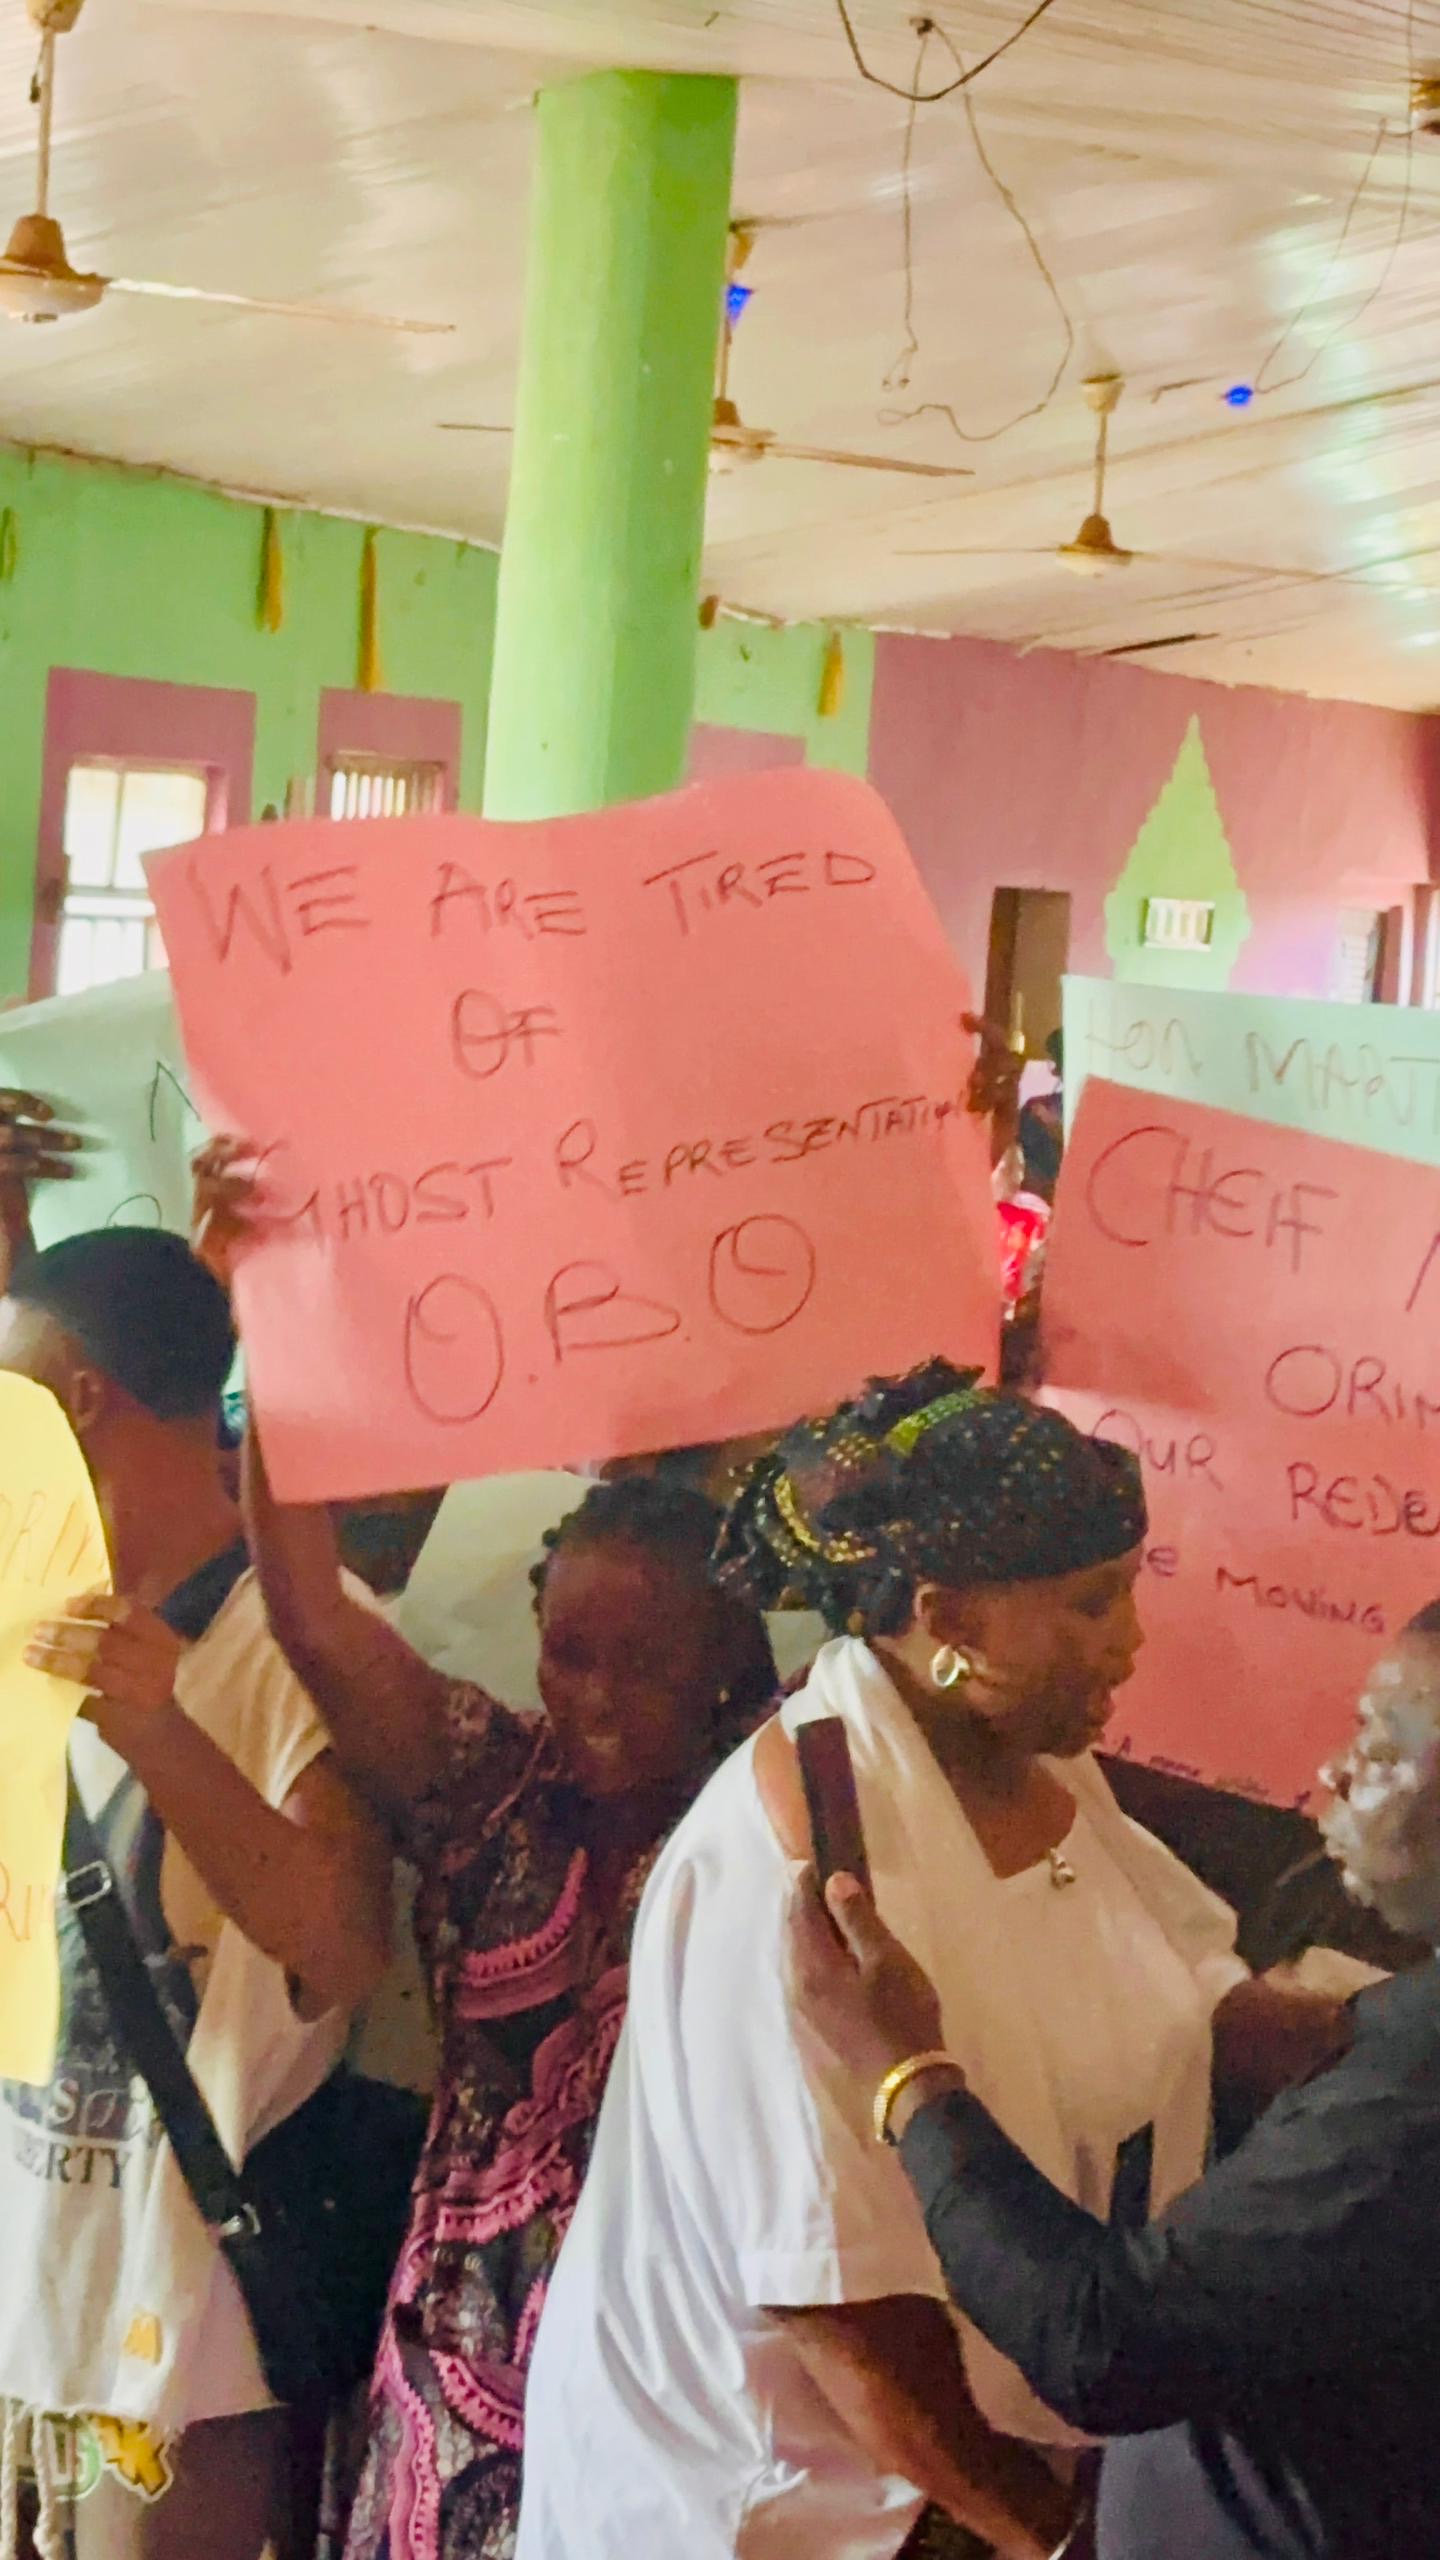 WE ARE TIRED
OF
GHOST REPRESENTATION
O.B.O
HON MART
CHEIF
ORIM
OUR REDE
E MOVING
ORIM
ERTY